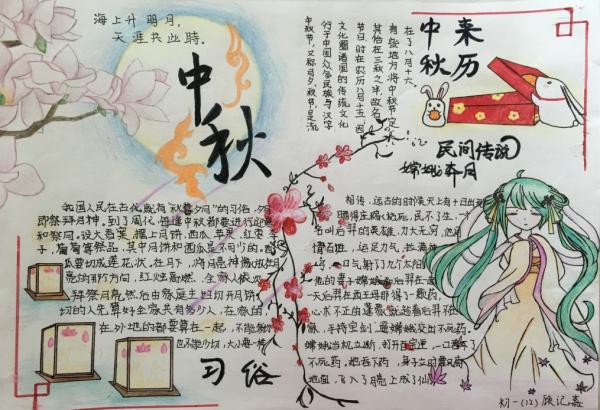 海上升明月,
天涯共此時.
中秋
中秋节,又称月夕,秋节,是流
行于中国众多民族与汉字
文化圈诸国的传统文化
节日,时在农历八月十五,因
其恰在三秋之半,故名,
有些地方将中秋节定
在了八月十六
中秋
来历
民间传说
嫦娥奔月
我国人民在古代就有"秋暮夕月"的习俗,夕月
即祭拜月神,到了周代,每逢中秋都要进行迎寒
和祭月。设大香案,摆上月饼、西瓜、苹果、红枣、李
子,葡萄等祭品,其中月饼和西瓜是不可少的。西
瓜要切成莲花状,在月下,将月亮神像放在月
亮的那个方向,红烛高燃,全家人依次
拜祭月亮,然后由家庭主妇切开月饼,
切的人先算好全家共有多少人,在家的
在外地的都要算在一起,不能多切
也不能少切,大小要一样
习俗
相传,远古的时候天上有十日
晒得庄稼枯死,民不了生,一个
名叫后羿的英雄,力大无穷,他同
情百姓,运足力气,拉满神
一口气射了九个太阳
他的妻子嫦娥
一天后羿在西王母那得了一颗药,
心术不正的逢蒙趁后羿不在
手持宝剑,逼嫦娥交出不死药。
嫦娥当机立断,
不死药,她吞下药,身子立即飘离
地面,飞入了月亮上成了仙
初一(12)顾记嘉